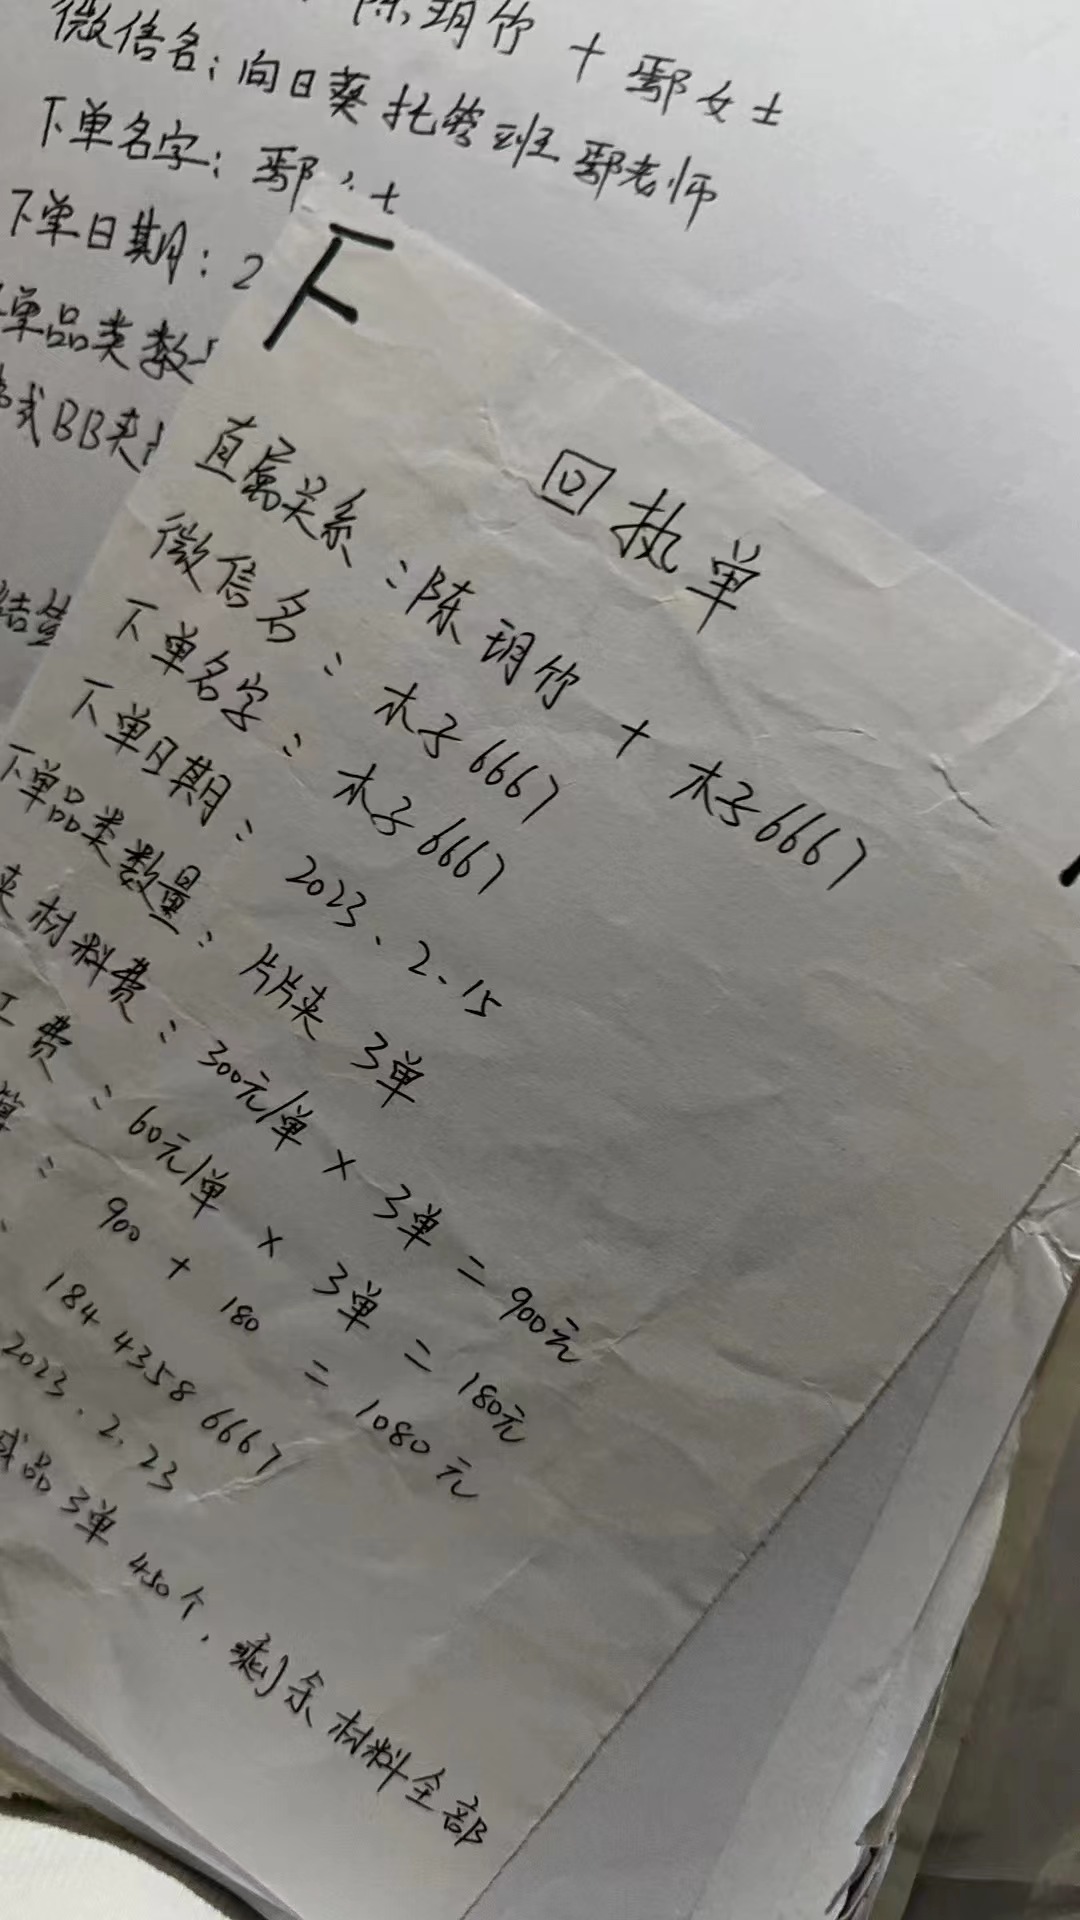 陈玥竹 + 鄢女士
微信名：向日葵托管班鄢老师
下单名字：鄢 士
下单日期：2
单品类数
式BB夹
结算
下
回执单
直属关系：陈玥竹 + 木子6667
微信名：木子6667
下单名字：木子6667
下单日期：2023.2.15
下单品类数量：片片夹 3单
夹材料费：300元/单 × 3单 = 900元
工费：60元/单 × 3单 = 180元
算：900 + 180 = 1080元
184 4358 6667
2023.2.23
成品3单 450个，剩余材料全部